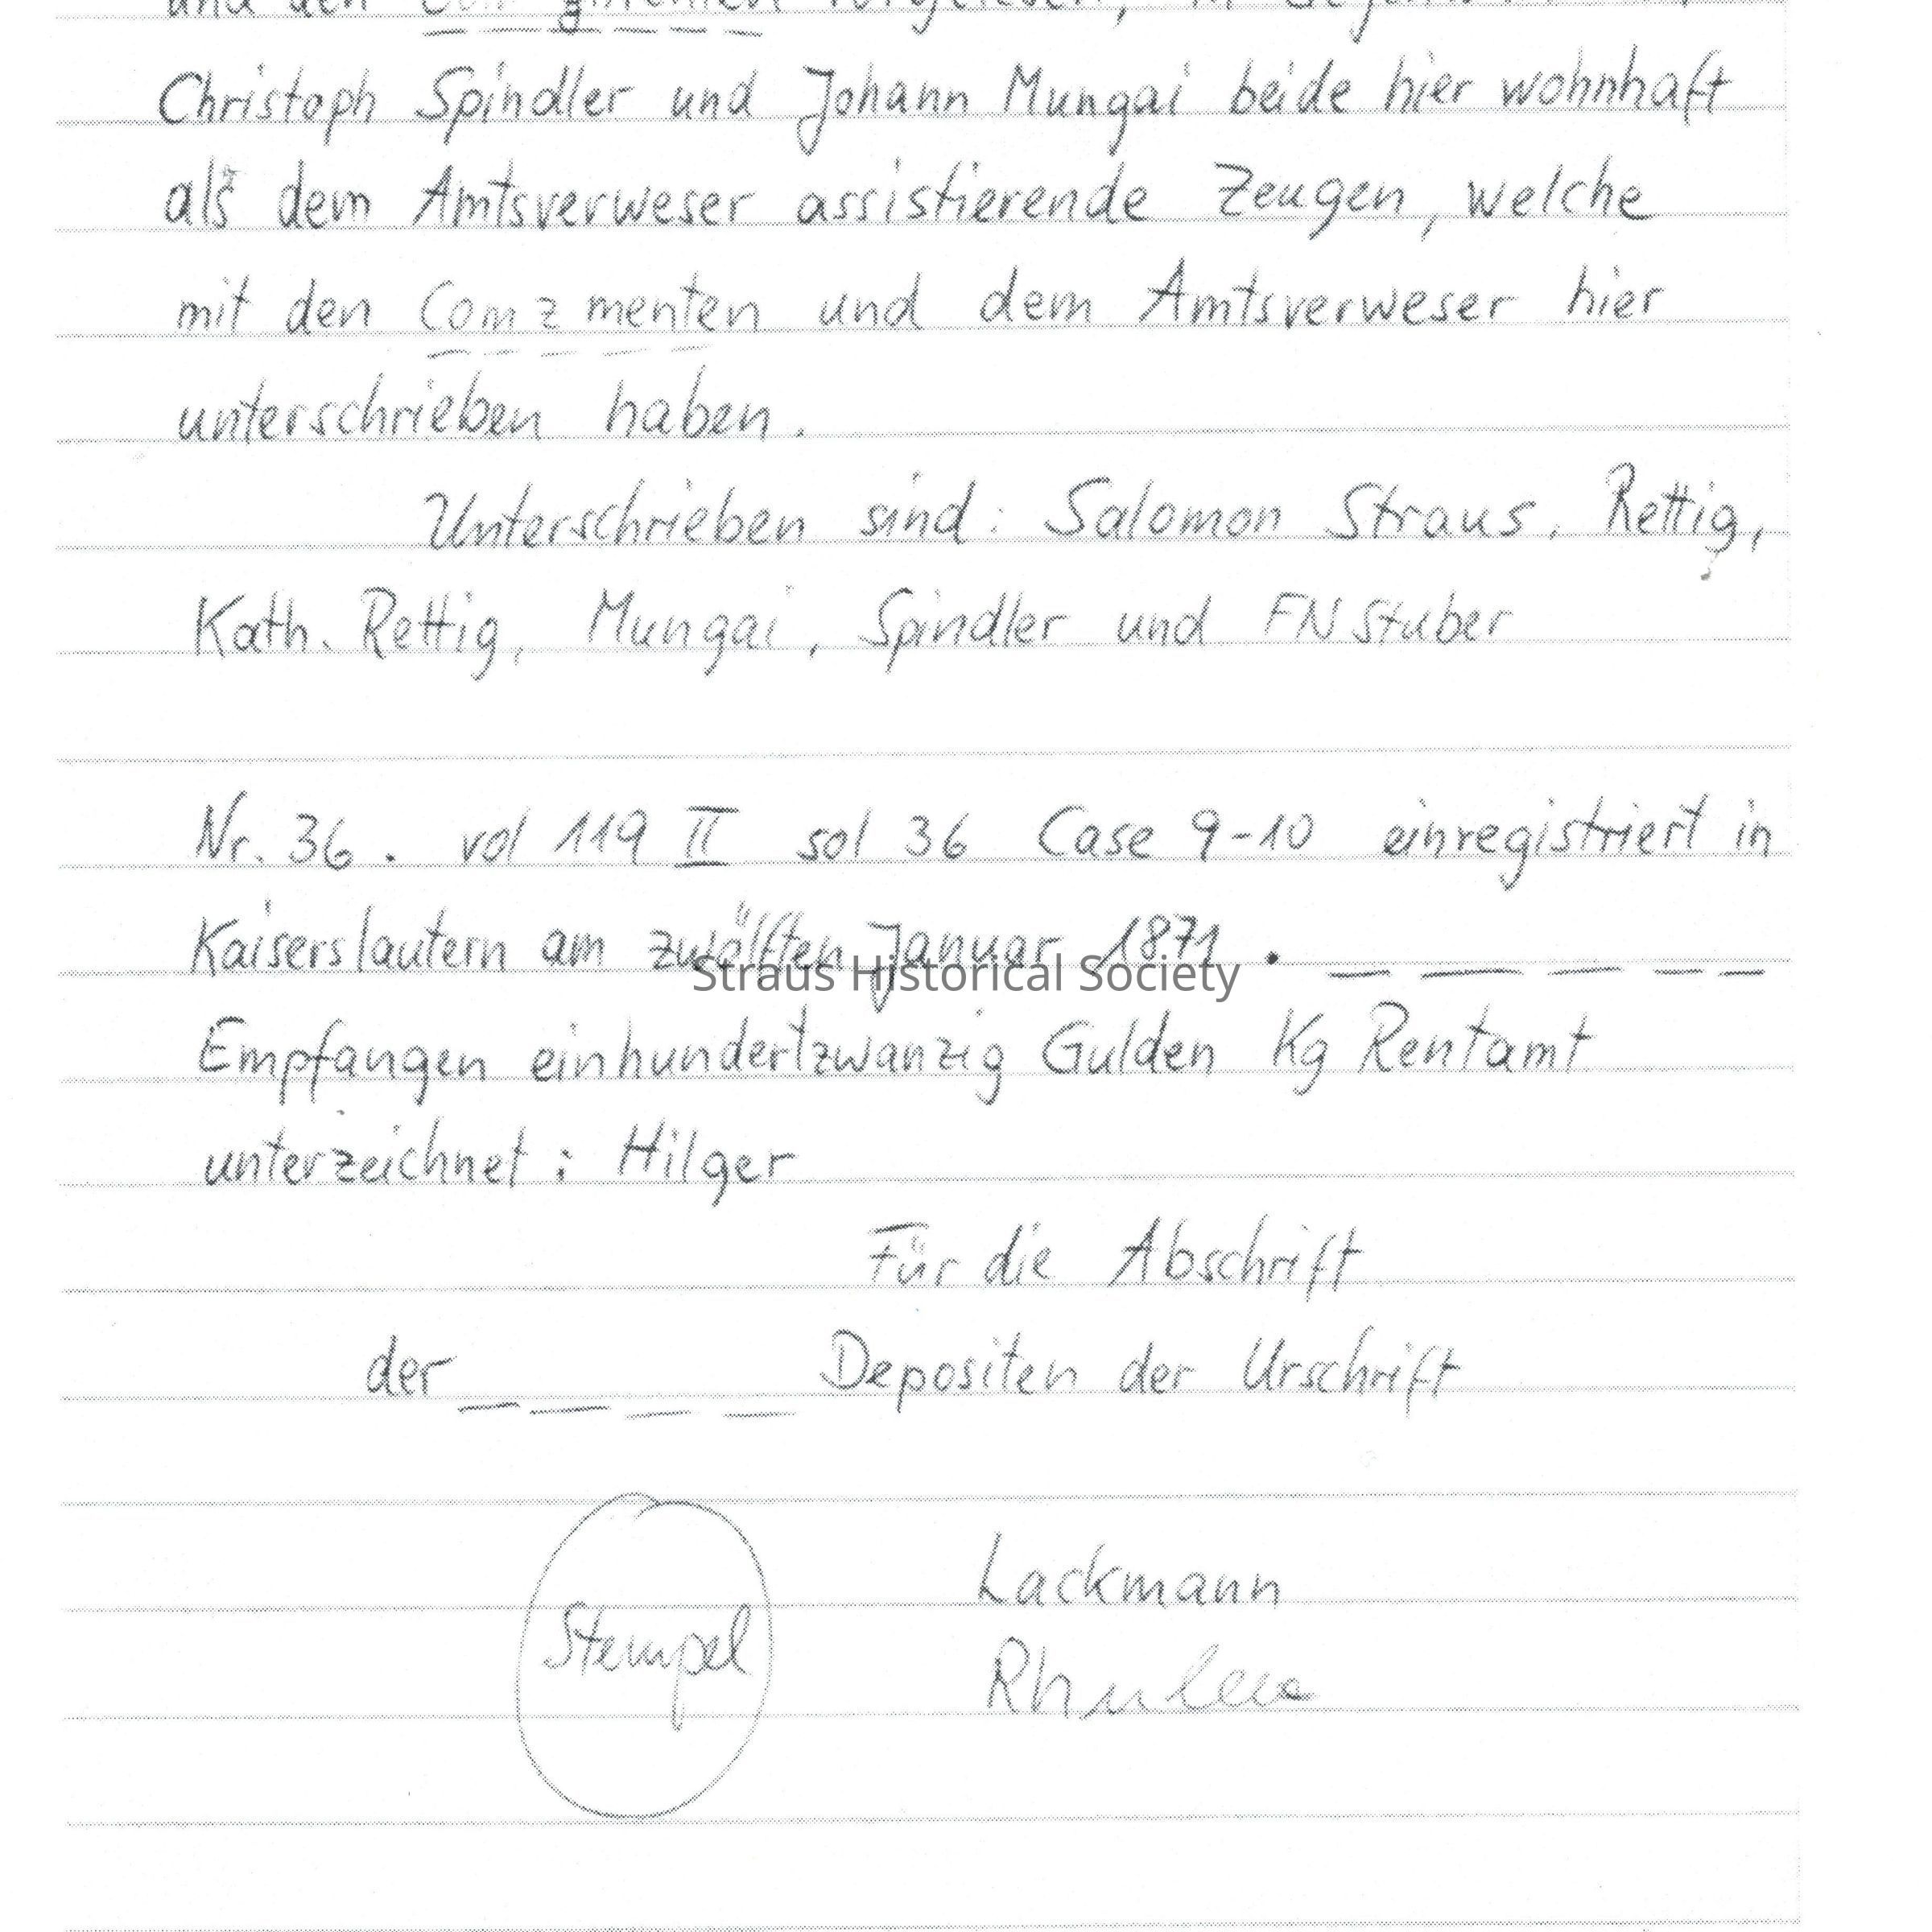 und den
Christoph Spindler und Johann Mungai beide hier wohnhaft
als dem Amtsverweser assistierende Zeugen, welche
mit den Com z menten und dem Amtsverweser hier
unterschrieben haben.
Unterschrieben sind: Salomon Straus, Rettig,
Kath. Rettig, Mungai, Spindler und FN Stuber
Nr. 36. vol 119 II sol 36 Case 9-10 einregistriert in
Kaiserslautern am zwölften Januar 1871.
Straus Historical Society
Empfangen einhundertzwanzig Gulden Kg Rentamt
unterzeichnet: Hilger
Für die Abschrift
der Depositen der Urschrift
Lackmann
Stempel